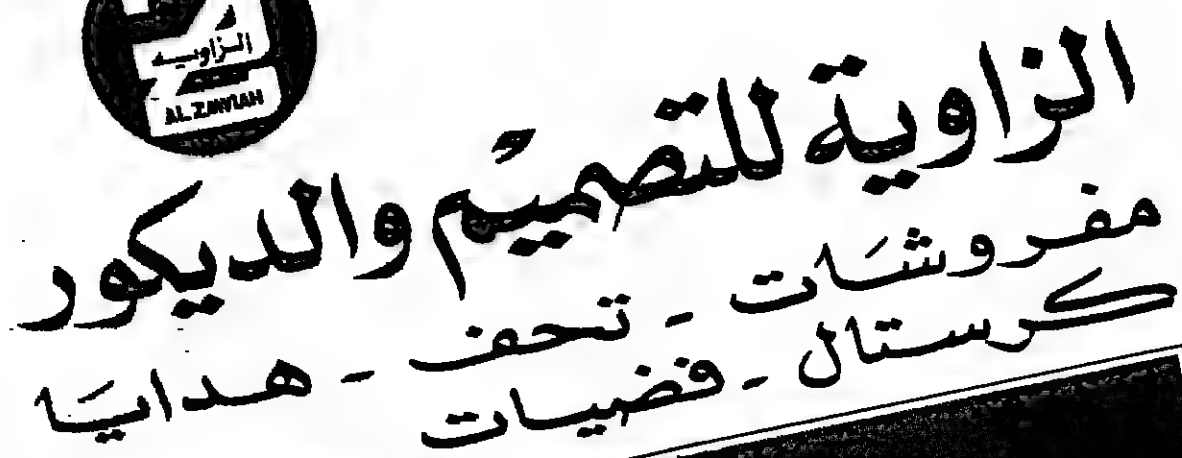 الزاويه
AL.ZAWIAH
الزاوية للتصميم والديكور
مفروشات - تحف - هدايا
كرستال - فضيات